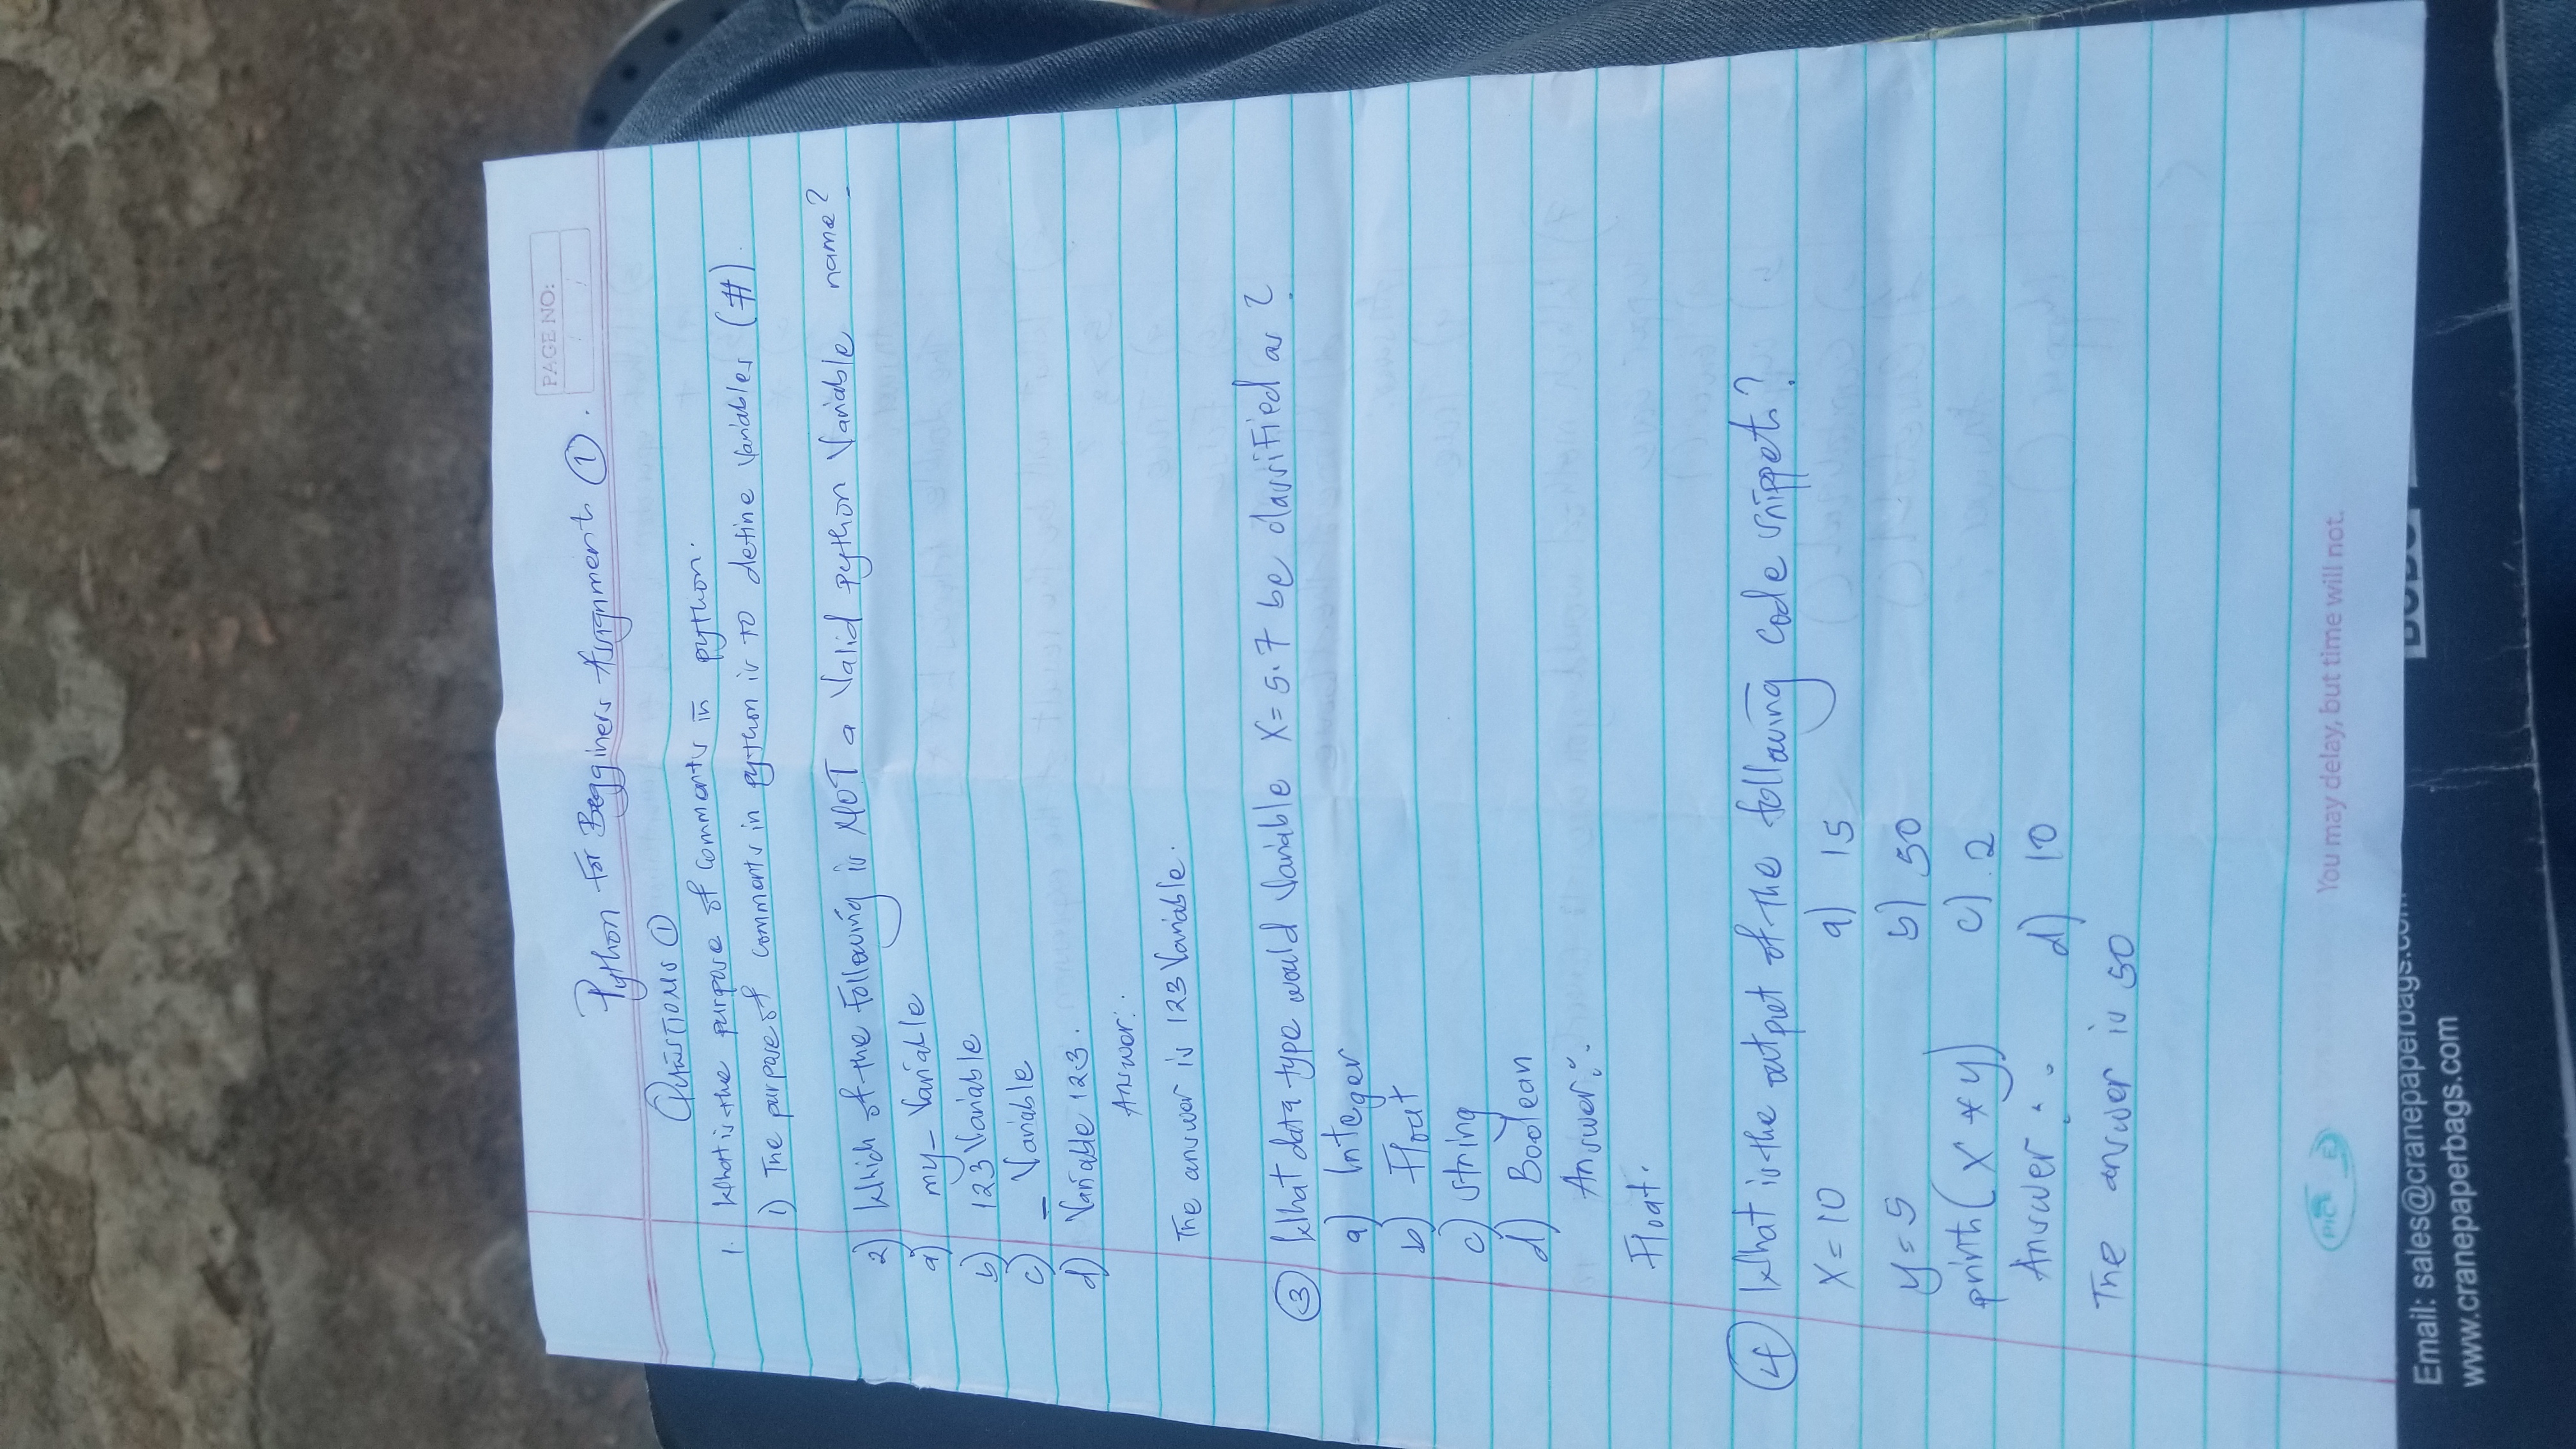 PAGE NO:
Python For Begginers Assignment ①.
QUESTIONS ①
1. What is the purpose of comments in python.
1) The purpose of comments in python is to define variables (#).
2) Which of the following is NOT a Valid python Variable name?
a) my_Variable
b) 123Variable
c) _Variable
d) Variable 123.
Answer:.
The answer is 123Variable.
③ What data type would Variable X=5.7 be classified as?
a) Integer
b) Float
c) string
d) Boolean
Answer:.
Float.
④ What is the output of the following code snippet?
X=10 a) 15
y=5 b) 50
print(X*y) c) 2
Answer:. d) 10
The answer is 50
You may delay, but time will not.
Email: sales@cranepaperbags.com
www.cranepaperbags.com